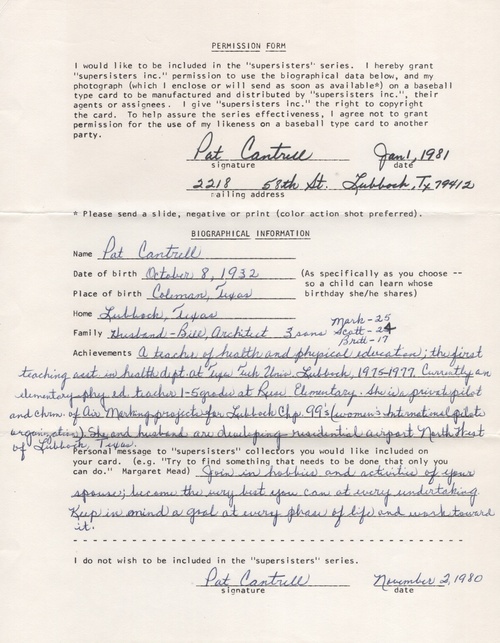 PERMISSION FORM
I would like to be included in the "supersisters" series. I hereby grant
"supersisters inc." permission to use the biographical data below, and my
photograph (which I enclose or will send as soon as available*) on a baseball
type card to be manufactured and distributed by "supersisters inc.", their
agents or assignees. I give "supersisters inc." the right to copyright
the card. To help assure the series effectiveness, I agree not to grant
permission for the use of my likeness on a baseball type card to another
party.
Pat Cantrell Jan 1, 1981
signature date
2218 58th St. Lubbock, Tx 79412
mailing address
* Please send a slide, negative or print (color action shot preferred).
BIOGRAPHICAL INFORMATION
Name Pat Cantrell
Date of birth October 8, 1932 (As specifically as you choose --
so a child can learn whose
Place of birth Coleman, Texas birthday she/he shares)
Home Lubbock, Texas
Mark-25
Family Husband-Bill, Architect 3 sons Scott-24
Britt-17
Achievements A teacher of health and physical education; the first
teaching asst in health dept. at Texas Tech Univ. Lubbock, 1975-1977. Currently an
elementary phy ed teacher 1-5 grade at Rush Elementary. She is a private pilot
and chrm. of Air Marking projects for Lubbock Chp. 99's (women's International pilots
organization). She and husband are developing residential airport North West
of Lubbock, Texas.
Personal message to "supersisters" collectors you would like included on
your card. (e.g. "Try to find something that needs to be done that only you
can do." Margaret Mead) Join in hobbies and activities of your
spouse; become the very best you can at every undertaking.
Keep in mind a goal at every phase of life and work toward
it.
I do not wish to be included in the "supersisters" series.
Pat Cantrell November 2, 1980
signature date